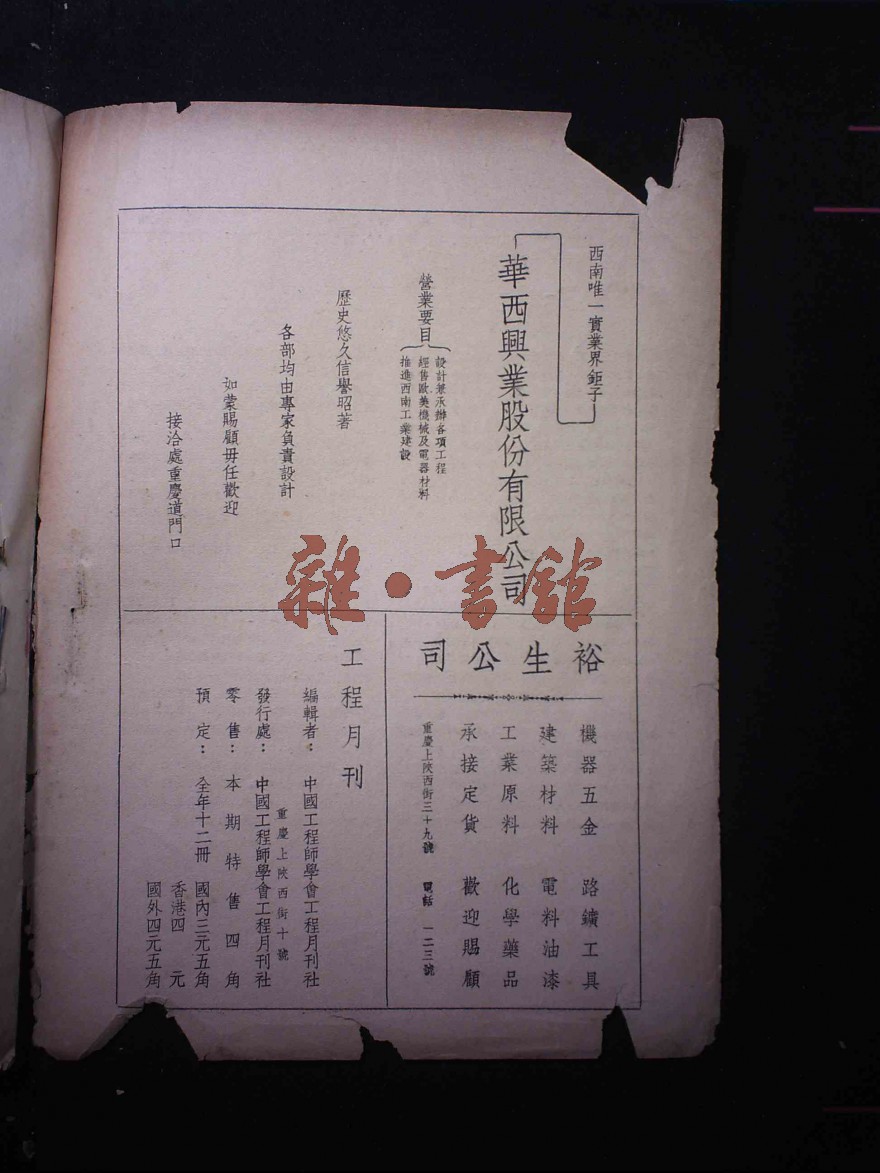 西南唯一實業界鉅子
華西興業股份有限公司
營業要目
設計兼承辦各項工程
經售歐美機械及電器材料
推進西南工業建設
歷史悠久信譽昭著
各部均由專家負責設計
如蒙賜顧毋任歡迎
接洽處重慶道門口
裕生公司
機器五金 路鑛工具
建築材料 電料油漆
工業原料 化學藥品
承接定貨 歡迎賜顧
重慶上陝西街三十九號 電話 一二三號
工程月刊
編輯者：中國工程師學會工程月刊社
重慶上陝西街十號
發行處：中國工程師學會工程月刊社
零售：本期特售四角
預定：全年十二冊 國內三元五角
香港四元
國外四元五角
雜·書館